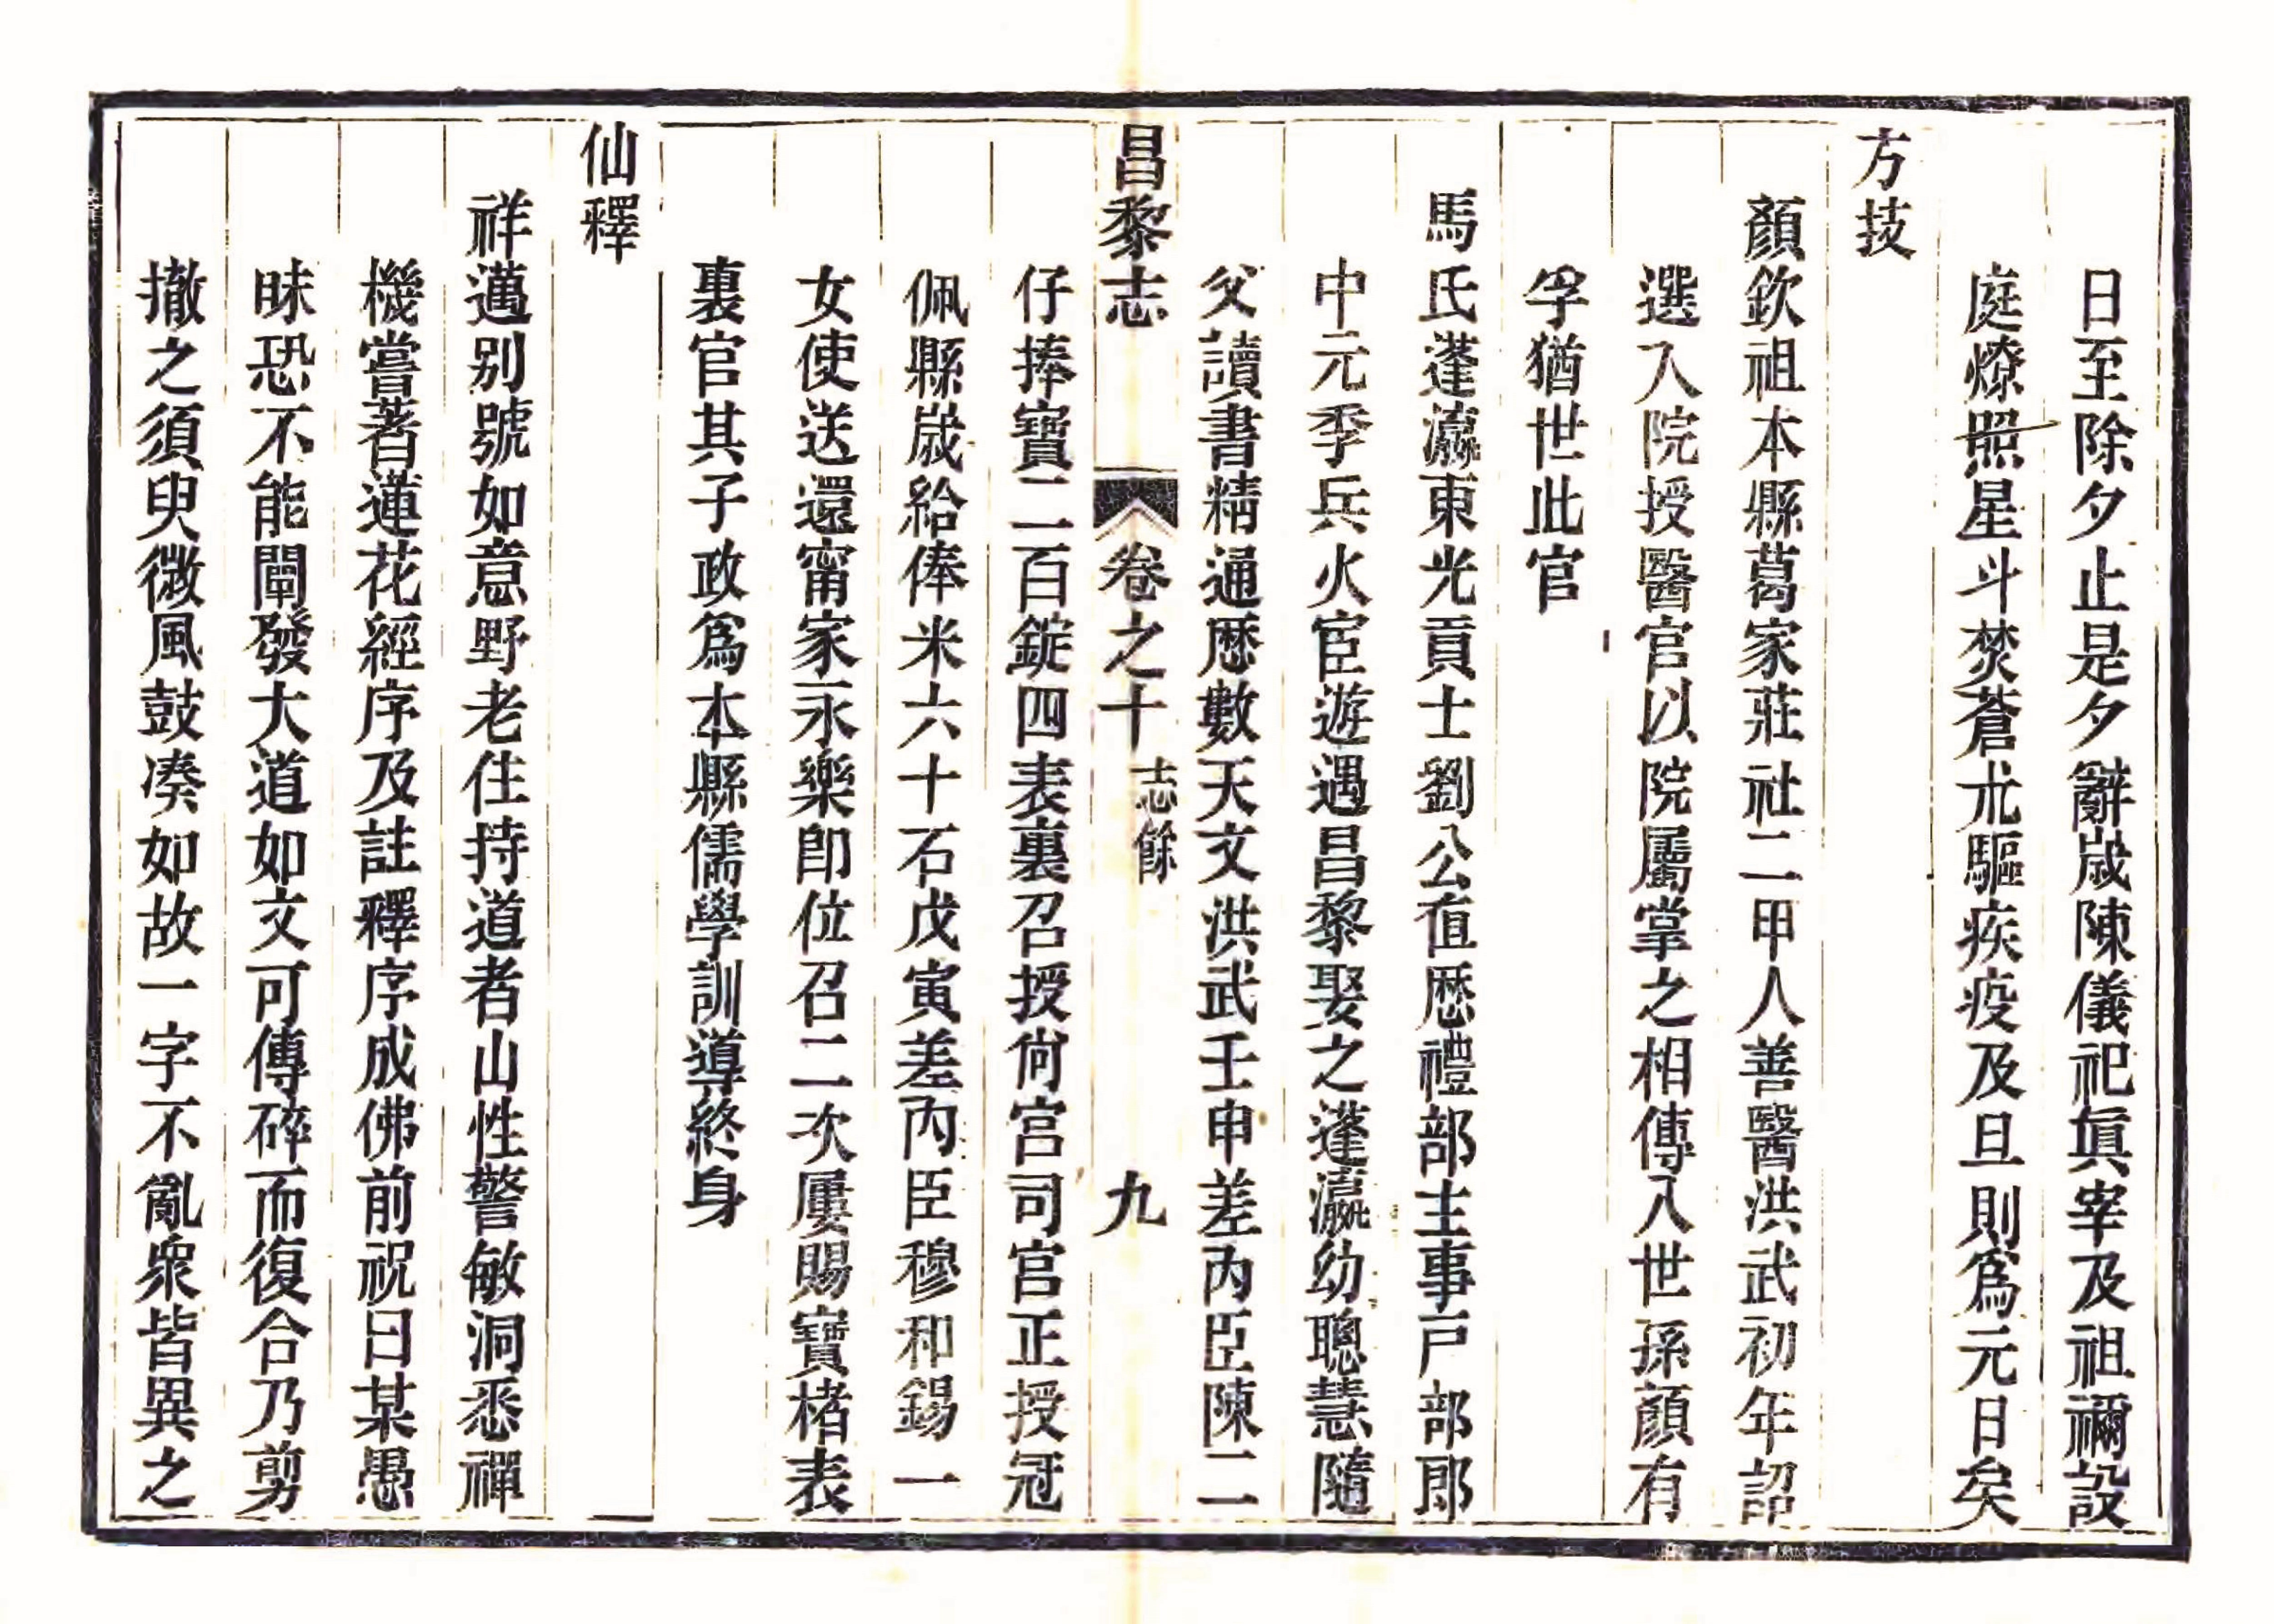 日至除夕止是夕辭歲陳儀祀眞宰及祖禰設
庭燎照星斗焚蒼朮驅疾疫及旦則爲元日矣
方技
顏欽祖本縣葛家莊社二甲人善醫洪武初年詔
選入院授醫官以院屬掌之相傳入世孫顏有
孚猶世此官
馬氏蓬瀛東光貢士劉公直歷禮部主事戸部郎
中元季兵火宦遊遇昌黎娶之蓬瀛幼聰慧隨
父讀書精通歷數天文洪武壬申差內臣陳二
昌黎志 卷之十 志餘 九
仔捧寶二百錠四表裏召授尚宮司宮正授冠
佩縣歲給俸米六十石戊寅差內臣穆和錫一
女使送還甯家永樂卽位召二次屢賜寶楮表
裏官其子政爲本縣儒學訓導終身
仙釋
祥邁别號如意野老住持道者山性警敏洞悉禪
機嘗著蓮花經序及註釋序成佛前祝曰某愚
昧恐不能闡發大道如文可傳碎而復合乃剪
撤之須臾微風鼓凑如故一字不亂衆皆異之